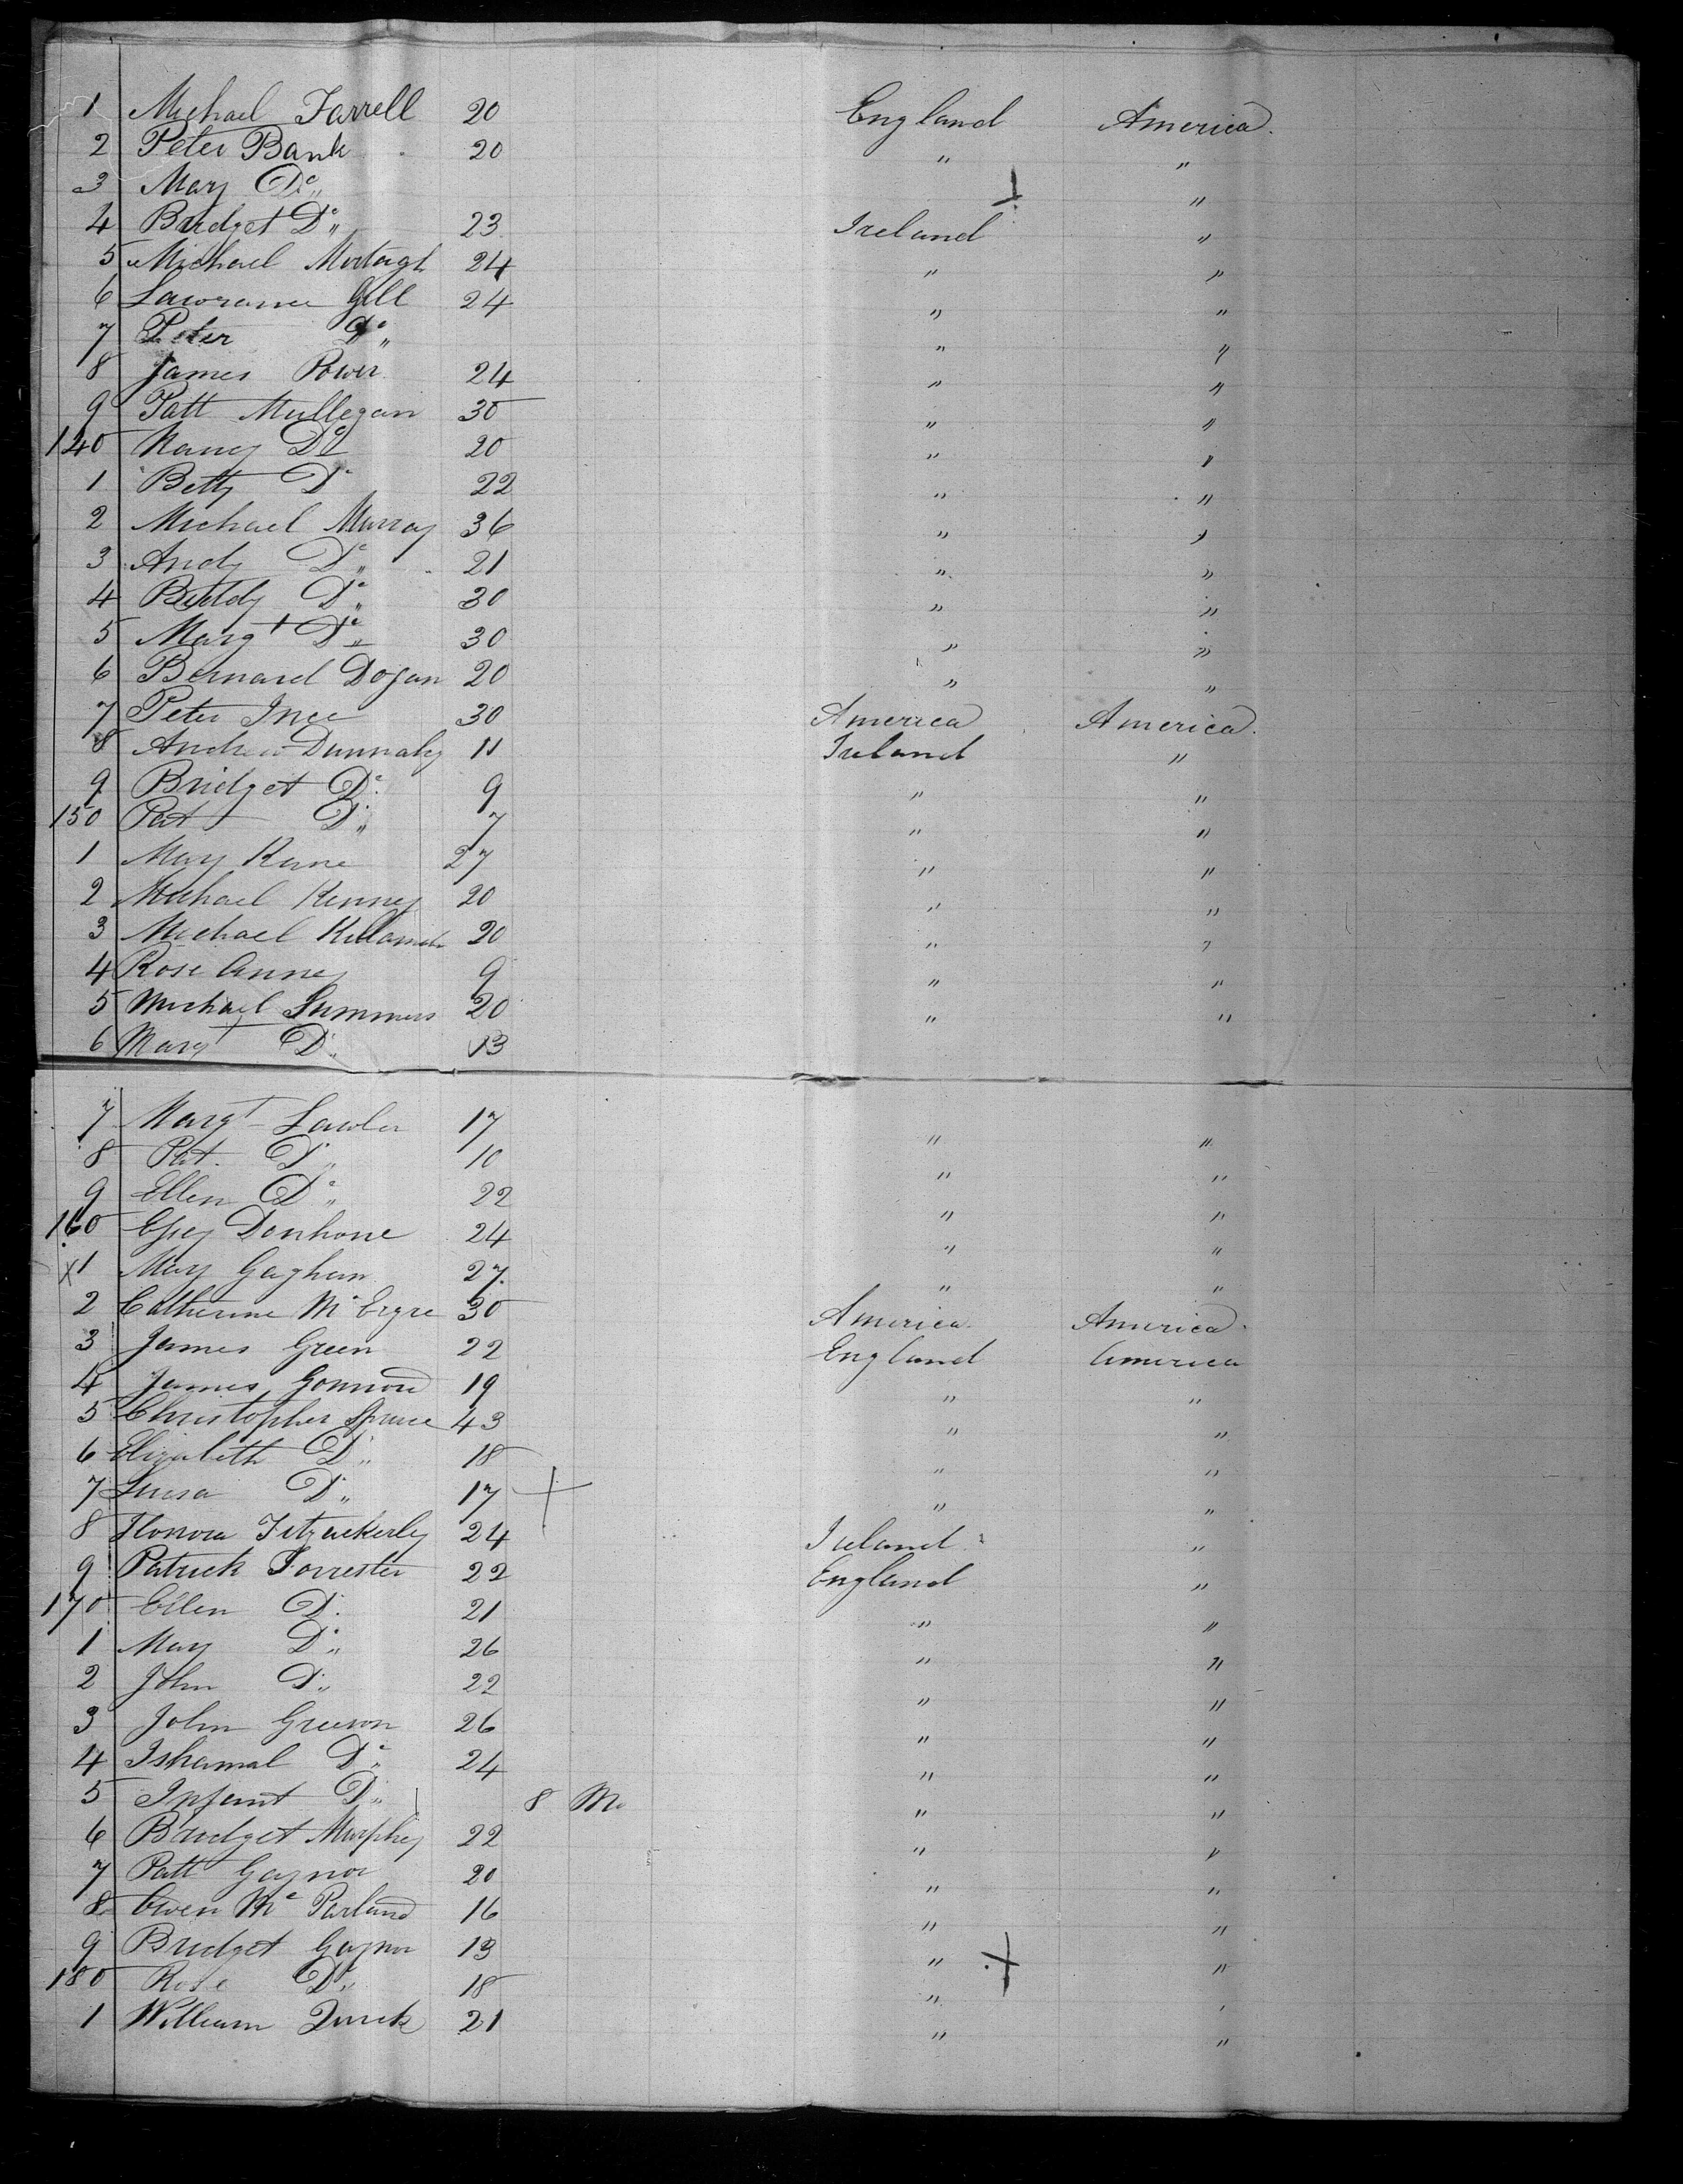 1 Michael Farrell 20 England America.
2 Peter Bank 20 " "
3 Mary Do "
4 Bridget Do 23 Ireland "
5 Michael Mortagh 24 " "
6 Lawrance Gill 24 " "
7 Peter Do " "
8 James Power 24 " "
9 Patt Mullegan 30 " "
140 Nancy Do 20 " "
1 Betty Do 22 " "
2 Michael Murray 36 " "
3 Andy Do 21 " "
4 Biddy Do 30 " "
5 Margt Do 30 " "
6 Bernard Dogan 20 " "
7 Peter Ince 30 America America.
8 Andrew Dunnahy 11 Ireland "
9 Bridget Do 9 " "
150 Pat Do 7 " "
1 Mary Kane 27 " "
2 Michael Kenney 20 " "
3 Michael 20 " "
4 Rose Anney 9 " "
5 Michael Summers 20 " "
6 Margt Do 13
7 Margt Lawler 17 " "
8 Pat. Do 10 " "
9 Ellen Do 22 " "
160 Donhone 24 " "
X 1 Mary Gaghan 27. " "
2 Catherine 30 America. America.
3 James Green 22 England America
4 James 19 " "
5 Christopher Spruce 43 " "
6 Elizabeth Do 18 " "
7 Luesa Do 17 + " "
8 Honora Fitzackerley 24 Ireland "
9 Patrick Forrester 22 England "
170 Ellen Do 21 " "
1 Mary Do 26 " "
2 John Do 22 " "
3 John Greeson 26 " "
4 Ishamal Do 24 " "
5 Infant Do 8 Mo " "
6 Bridget Murphey 22 " "
7 Patt Gaynor 20 " "
8 Owen Mc Parland 16 " "
9 Bridget Gaynor 13 " + "
180 Rose Do 18 " "
1 William Quirk 21 " "